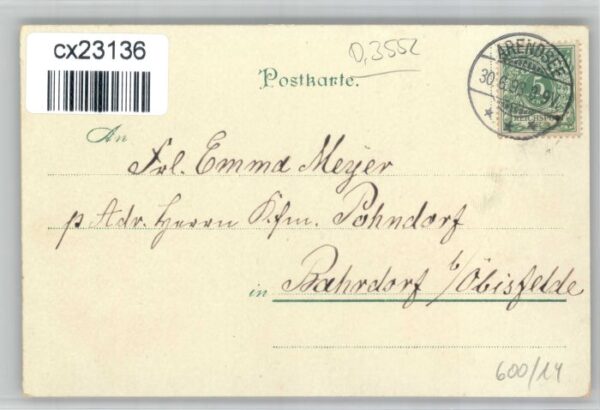 cx23136
D,3552
Postkarte.
ARENDSEE
An
Frl. Emma Meyer
p Adr. Herrn Kfm. Pohndorf
in Bahrdorf b/Öbisfelde
600/14